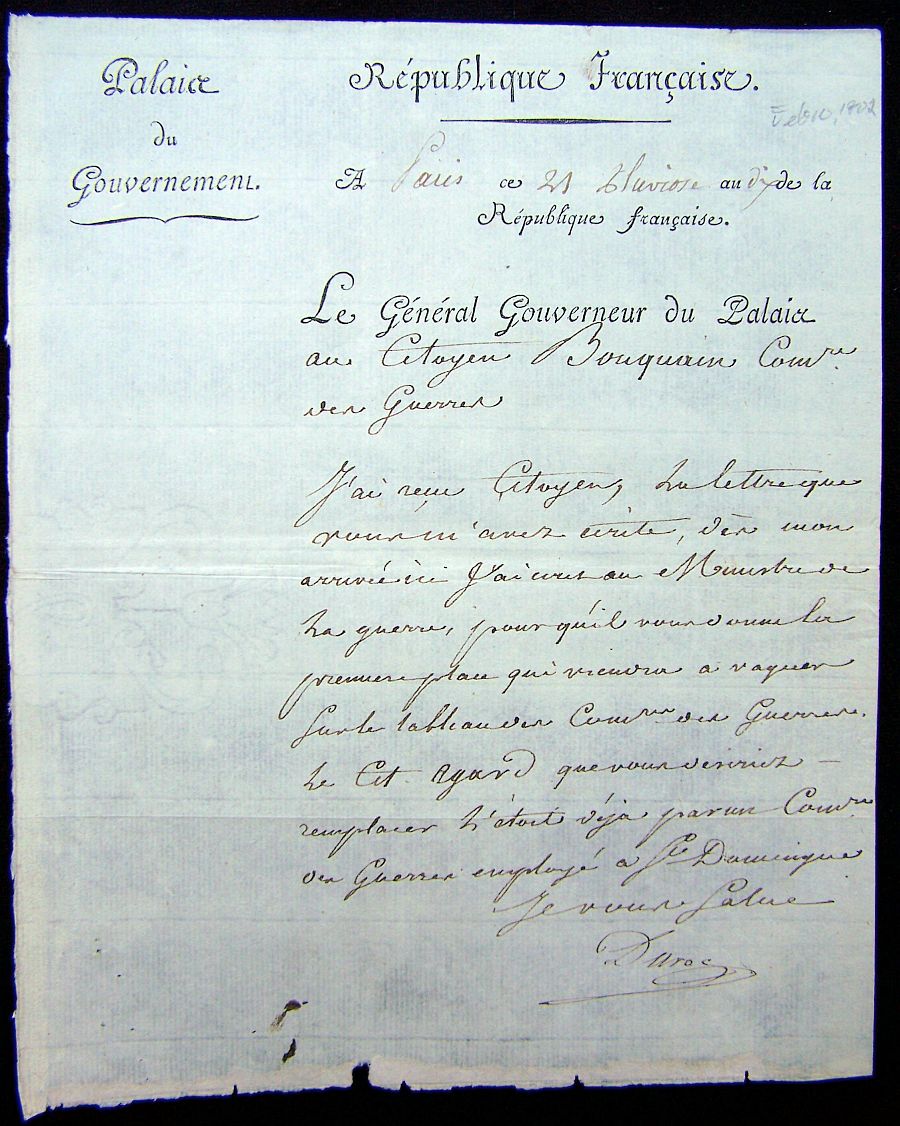 Palais
du
Gouvernement.
République Française.
1802
A Paris ce 21 Pluviose an dix de la
République française.
Le Général Gouverneur du Palais
au Citoyen Bouquain Comre
des Guerres
J'ai reçu Citoyen, la lettre que
vous m'avez écrite, dès mon
arrivée ici J'ai écrit au Ministre de
la guerre, pour qu'il vous donne la
premiere place qui viendra a vaquer
sur le tableau des Comres des Guerres.
Le Cit que vous desiriez
remplacer l'étoit déja par un Comre
des Guerres employé a St Domingue
Je vous Salue
Duroc